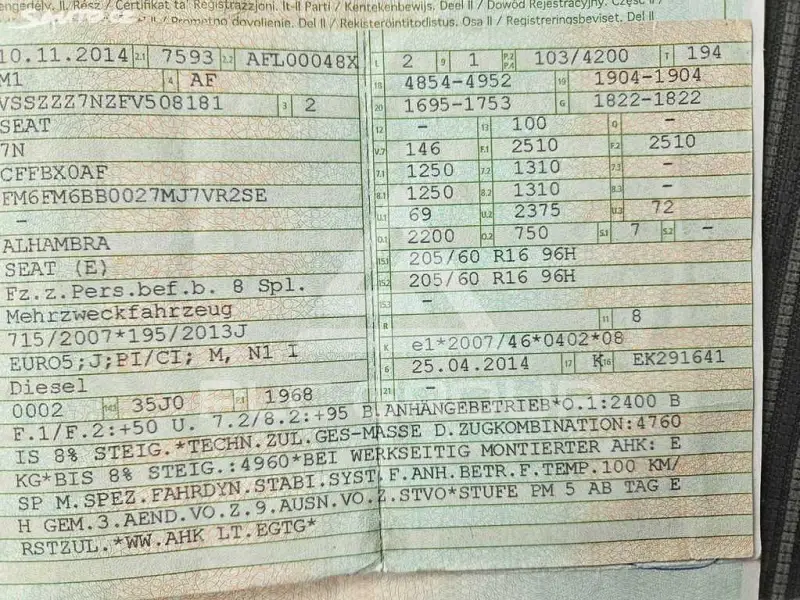 engedély, II. Rész / Ċertifikat ta' Reġistrazzjoni. It-II Parti / Kentekenbewijs. Deel II / Dowód Rejestracyjny. Część II /
II / Prometno dovoljenje. Del II / Rekisteröintitodistus. Osa II / Registreringsbeviset. Del II
10.11.2014 2.1 7593 2.2 AFL00048X
M1 4 AF
VSSZZZ7NZFV508181 3 2
SEAT
7N
CFFBX0AF
FM6FM6BB0027MJ7VR2SE
–
ALHAMBRA
SEAT (E)
Fz.z.Pers.bef.b. 8 Spl.
Mehrzweckfahrzeug
715/2007*195/2013J
EURO5;J;PI/CI; M, N1 I
Diesel
0002 14.1 35J0 P.1 1968
L 2 9 1 P.2 P.4 103/4200 T 194
18 4854-4952 19 1904-1904
20 1695-1753 G 1822-1822
12 – 13 100 Q –
V.7 146 F.1 2510 F.2 2510
7.1 1250 7.2 1310 7.3 –
8.1 1250 8.2 1310 8.3 –
U.1 69 U.2 2375 U.3 72
O.1 2200 O.2 750 S.1 7 S.2 –
15.1 205/60 R16 96H
15.2 205/60 R16 96H
15.3 –
R 11 8
K e1*2007/46*0402*08
6 25.04.2014 17 K 16 EK291641
21 –
F.1/F.2:+50 U. 7.2/8.2:+95 B.ANHÄNGEBETRIEB*O.1:2400 B
IS 8% STEIG.*TECHN.ZUL.GES-MASSE D.ZUGKOMBINATION:4760
KG*BIS 8% STEIG.:4960*BEI WERKSEITIG MONTIERTER AHK: E
SP M.SPEZ.FAHRDYN.STABI.SYST.F.ANH.BETR.F.TEMP.100 KM/
H GEM.3.AEND.VO.Z.9.AUSN.VO.Z.STVO*STUFE PM 5 AB TAG E
RSTZUL.*WW.AHK LT.EGTG*